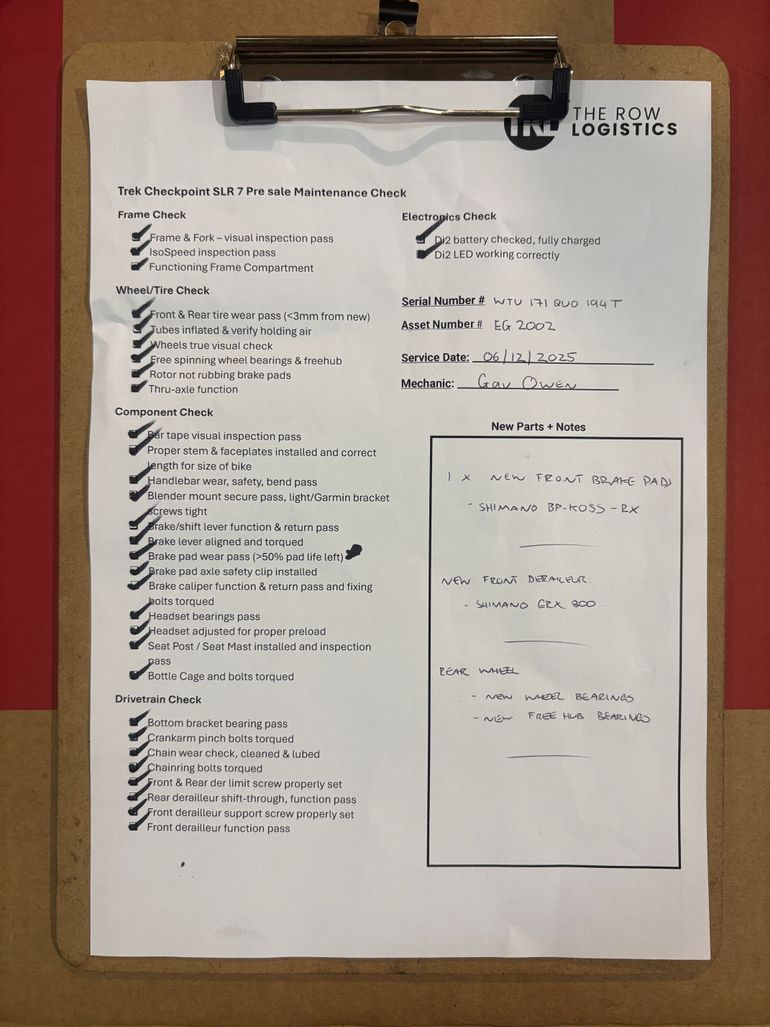 THE ROW
LOGISTICS
Trek Checkpoint SLR 7 Pre sale Maintenance Check
Frame Check
Frame & Fork – visual inspection pass
IsoSpeed inspection pass
Functioning Frame Compartment
Wheel/Tire Check
Front & Rear tire wear pass (<3mm from new)
Tubes inflated & verify holding air
Wheels true visual check
Free spinning wheel bearings & freehub
Rotor not rubbing brake pads
Thru-axle function
Component Check
Bar tape visual inspection pass
Proper stem & faceplates installed and correct
length for size of bike
Handlebar wear, safety, bend pass
Blender mount secure pass, light/Garmin bracket
screws tight
Brake/shift lever function & return pass
Brake lever aligned and torqued
Brake pad wear pass (>50% pad life left)
Brake pad axle safety clip installed
Brake caliper function & return pass and fixing
bolts torqued
Headset bearings pass
Headset adjusted for proper preload
Seat Post / Seat Mast installed and inspection
pass
Bottle Cage and bolts torqued
Drivetrain Check
Bottom bracket bearing pass
Crankarm pinch bolts torqued
Chain wear check, cleaned & lubed
Chainring bolts torqued
Front & Rear der limit screw properly set
Rear derailleur shift-through, function pass
Front derailleur support screw properly set
Front derailleur function pass
Electronics Check
Di2 battery checked, fully charged
Di2 LED working correctly
Serial Number # WTU 171 QUO 194 T
Asset Number # EG 2002
Service Date: 06/12/2025
Mechanic: Gav Owen
New Parts + Notes
1 x NEW FRONT BRAKE PADS
- SHIMANO BP-K05S-RX
NEW FRONT DERAILEUR.
- SHIMANO GRX 800.
REAR WHEEL
- NEW WHEEL BEARINGS
- NEW FREE HUB BEARINGS